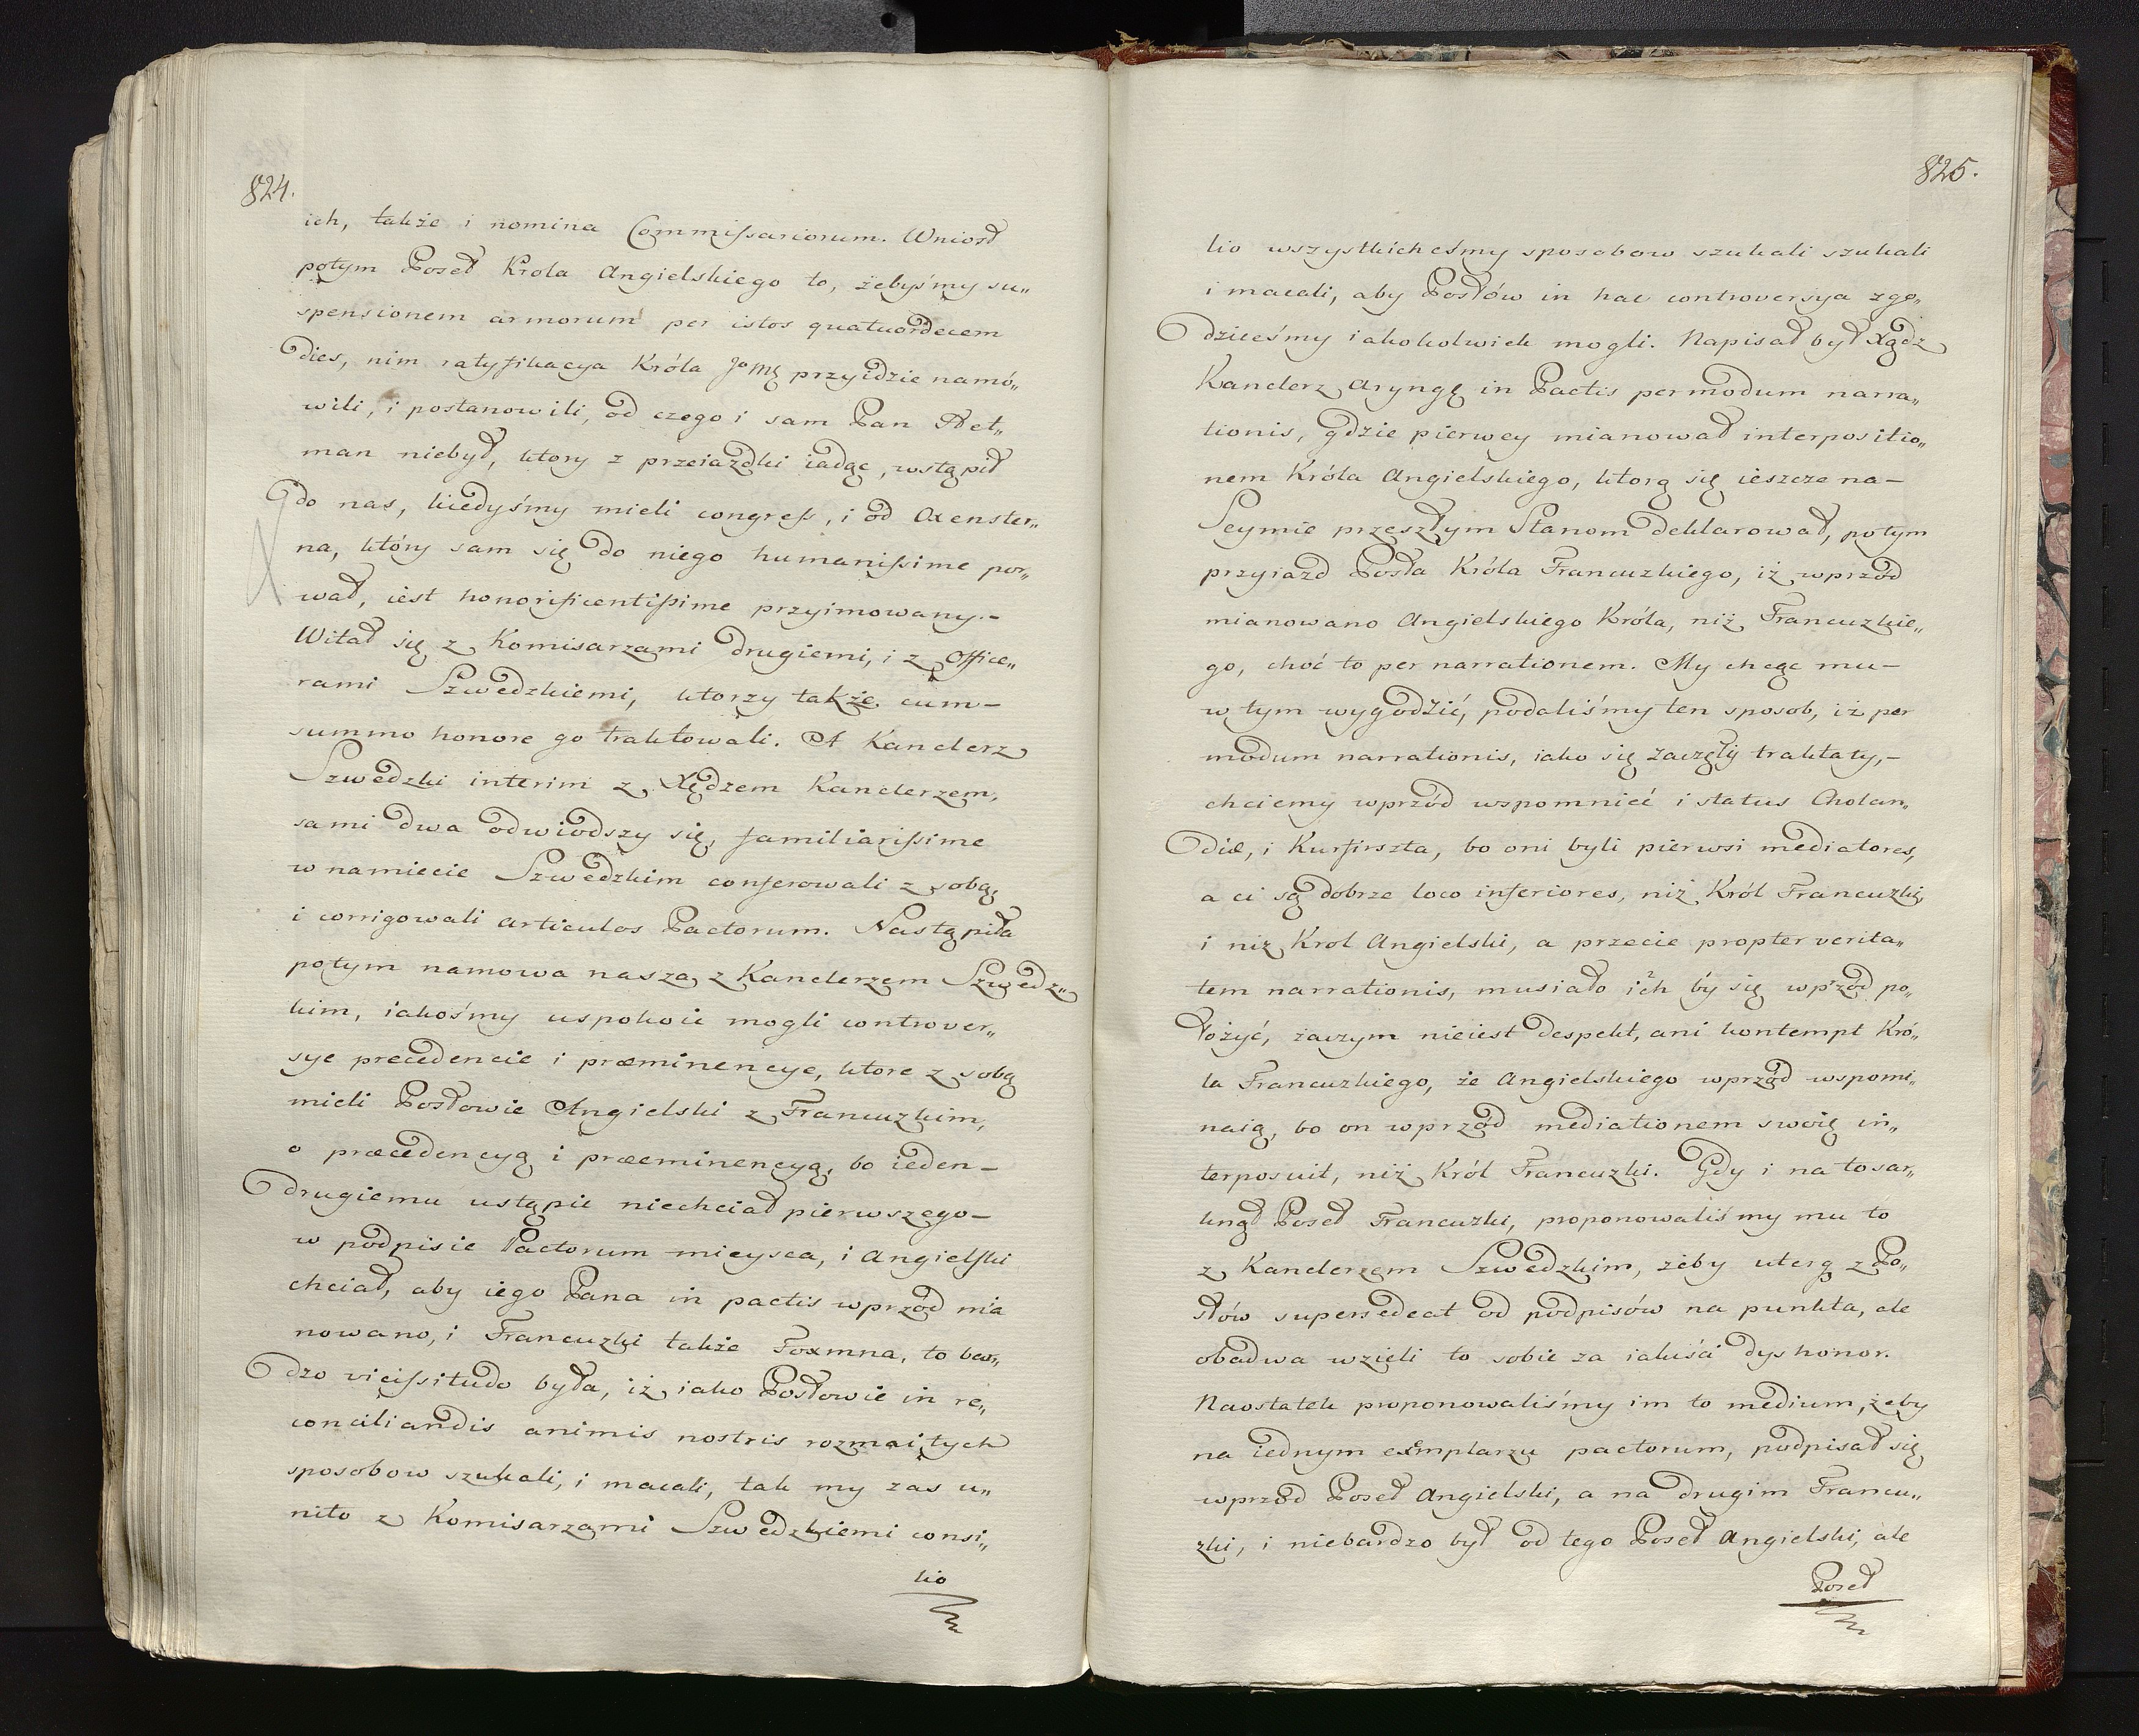 824.
ich, także i nomina Commißariorum. Wniosł
potym Poseł Krola Angielskiego to, żebyśmy su„
spensionem armorum per istos quatuordecem
dies, nim ratyfikacya Króla JoMę przyidzie namó„
wili, i postanowili, od czego i sam Pan Het„
man niebył, ktory z przeiazdki iadąc, wstąpił
do nas, kiedyśmy mieli congreß, i od Oxenster„
na, który sam się do niego humanißime por„
wał, iest honorificentißime przyimowany.–
Witał się z Komisarzami drugiemi, i z Office„
rami Szwedzkiemi, ktorzy także cum–
summo honore go traktowali. A Kanclerz
Szwedzki interim z Xiędzem Kanclerzem,
sami dwa odwiodszy się, familiarißime
w namiecie Szwedzkim conferowali z sobą,
i corrigowali articulos Pactorum. Nastąpiła
potym namowa nasza z Kanclerzem Szwedz„
kim, iakośmy uspokoić mogli controver„
sye precedencie i præminencye, ktore z sobą
mieli Posłowie Angielski z Francuzkim,
o præcedencyą i præeminencyą, bo ieden–
drugiemu ustąpić niechciał pierwszego–
w podpisie Pactorum mieysca, i Angielski
chciał, aby iego Pana in pactis wprzód mia
nowano, i Francuzki także Foxmna, to bar„
dzo vicißitudo była, iż iako Posłowie in re„
conciliandis animis nostris rozmaitych
sposobow szukali, i macali, tak my zas u„
nito z Komisarzami Szwedzkiemi consi„
lio
825.
lio wszystkicheśmy sposobow szukali szukali
i macali, aby Posłów in hac controversya zgo„
dzileśmy iakokolwiek mogli. Napisał był Xądz
Kanclerz aryngę in Pactis per modum narra„
tionis, gdzie pierwey mianował interpositio„
nem Króla Angielskiego, ktorą się ieszcze na–
Seymie przeszłym Stanom deklarował, potym
przyiazd Posła Króla Francuzkiego, iż wprzód
mianowano Angielskiego Króla, niż Francuzkie„
go, choć to per narrationem. My chcąc mu–
w tym wygodzić, podaliśmy ten sposob, iż per
modum narrationis, iako się zaczęły traktaty,–
chciemy wprzód wspomnieć i status Cholan„
diæ, i Kurfirszta, bo oni byli pierwsi mediatores,
a ci są dobrze loco inferiores, niż Król Francuzki,
i niż Krol Angielski, a przecie propter verita„
tem narrationis, musiało ich by się wprzód po„
łożyć, zaczym nieiest despekt, ani kontempt Kró„
la Francuzkiego, że Angielskiego wprzód wspomi„
naią, bo on wprzód mediationem swoię in„
terposuit, niż Król Francuzki. Gdy i na to sar„
knął Poseł Francuzki, proponowaliśmy mu to
z Kanclerzem Szwedzkim, żeby uterq z Po„
słów supersedeat od podpisów na punkta, ale
obadwa wzieli to sobie za iakuści dyshonor.
Naostatek proponowaliśmy im to medium, żeby
na iednym exemplarzu pactorum, podpisał się
wprzód Poseł Angielski, a na drugim Francu„
zki, i niebardzo był od tego Poseł Angielski, ale
Poseł